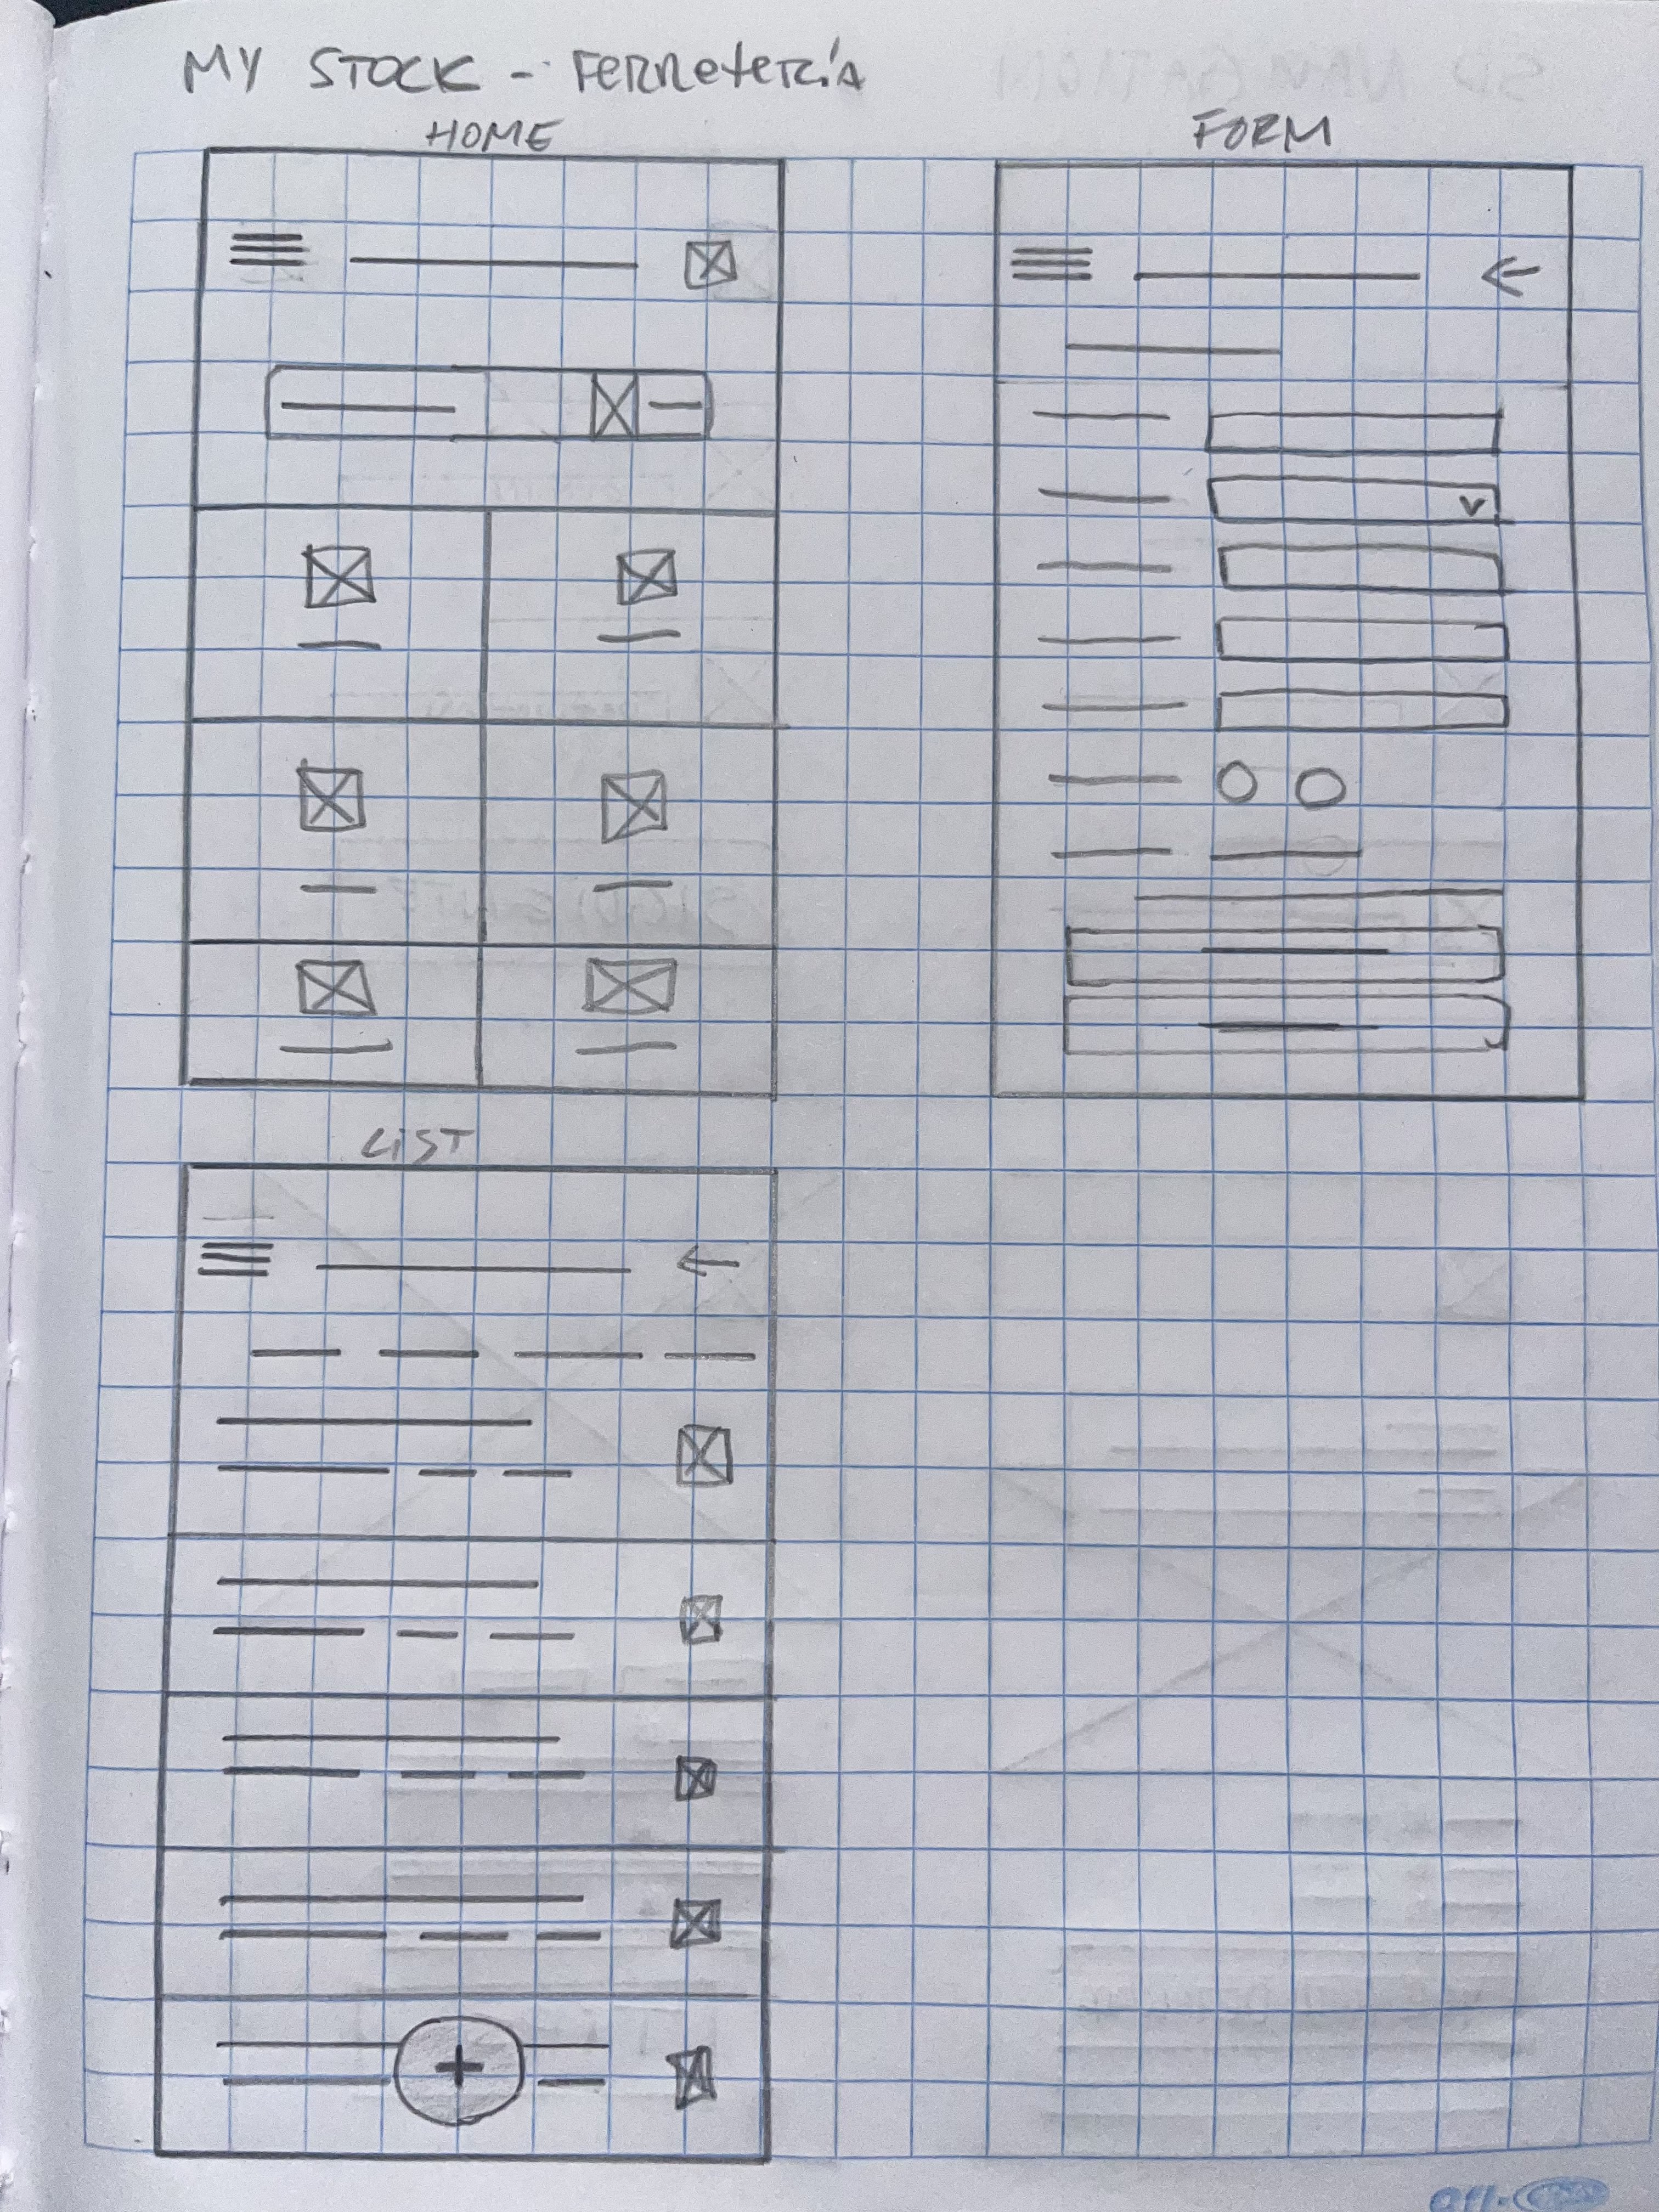 MY STOCK - Ferretería
HOME
FORM
LIST